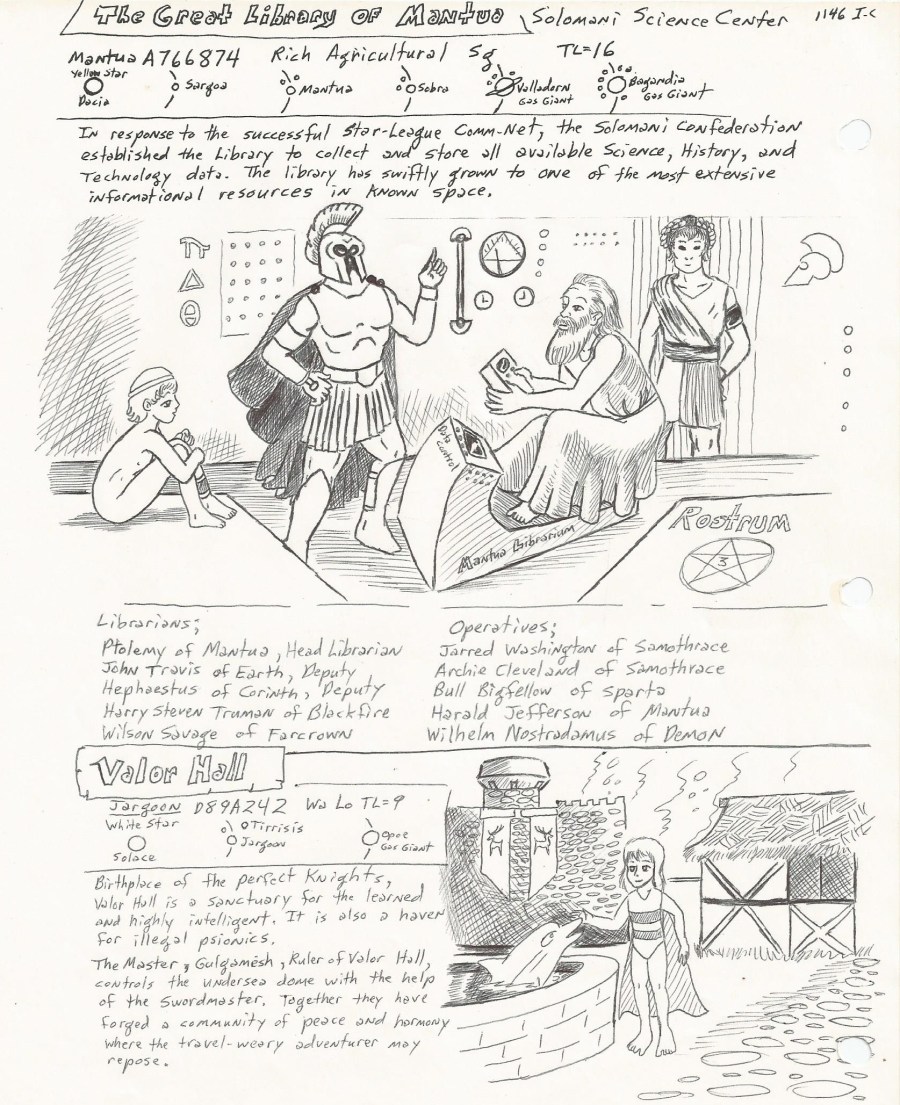 The Great Library of Mantua Solomani Science Center 1146 I-C
Mantua A766874 Rich Agricultural Sg TL=16
Yellow Star
Dacia
Sargoa
Mantua
Sobra
Valladorn
Gas Giant
Bagandia
Gas Giant
In response to the successful Star-League Comm-Net, the Solomani Confederation
established the Library to collect and store all available Science, History, and
Technology data. The library has swiftly grown to one of the most extensive
informational resources in known space.
π
Δ
Θ
Data
Control
Mantua Librarium
Rostrum
3
Librarians;
Ptolemy of Mantua, Head Librarian
John Travis of Earth, Deputy
Hephaestus of Corinth, Deputy
Harry Steven Truman of Blackfire
Wilson Savage of Farcrown
Operatives;
Jarred Washington of Samothrace
Archie Cleveland of Samothrace
Bull Bigfellow of Sparta
Harald Jefferson of Mantua
Wilhelm Nostradamus of Demon
Valor Hall
Jargoon D89A242 Wa Lo TL=9
White Star
Solace
Tirrisis
Jargoon
Opoe
Gas Giant
Birthplace of the perfect Knights,
Valor Hall is a sanctuary for the learned
and highly intelligent. It is also a haven
for illegal psionics.
The Master, Gulgamesh, Ruler of Valor Hall,
controls the undersea dome with the help
of the Swordmaster. Together they have
forged a community of peace and harmony
where the travel-weary adventurer may
repose.